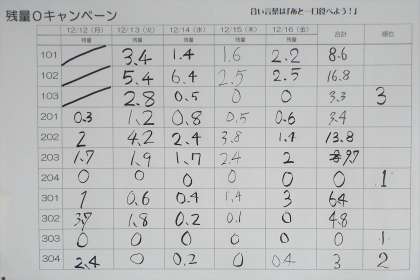 残量０キャンペーン 合い言葉は「あと一口食べよう！」
12/12（月） 12/13（火） 12/14（水） 12/15（木） 12/16（金） 合計 順位
残量 残量 残量 残量 残量
101 3.4 1.4 1.6 2.2 8.6
102 5.4 6.4 2.5 2.5 16.8
103 2.8 0.5 0 0 3.3 3
201 0.3 1.2 0.8 0.5 0.6 3.4
202 2 4.2 2.4 3.8 1.4 13.8
203 1.7 1.9 1.7 2.4 2 9.7
204 0 0 0 0 0 0 1
301 1 0.6 0.4 1.4 3 6.4
302 1.8 0.2 0.1 0 4.8
303 0 0 0 0 0 0 1
304 2.4 0 0.2 0 0.4 3 2